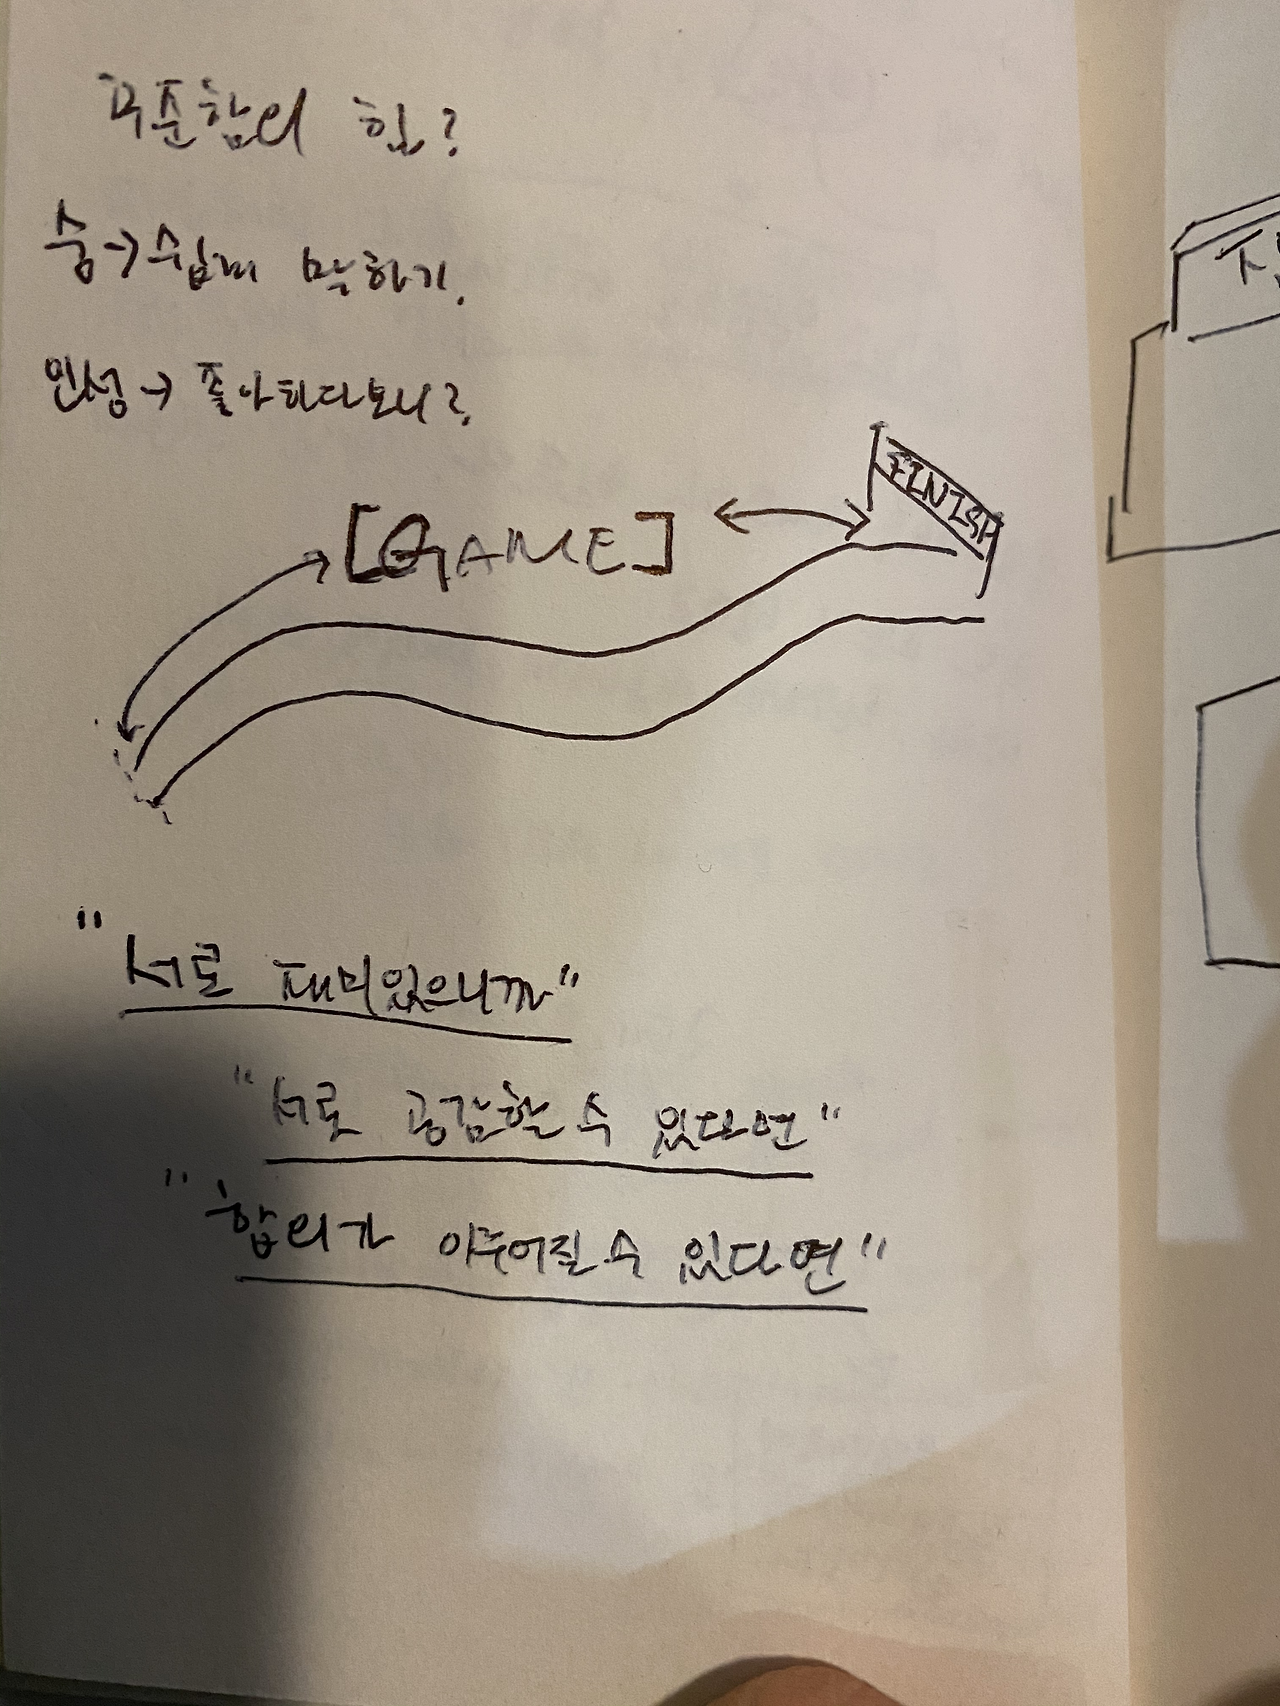 꾸준함의 힘?
숭→쉽게 말하기.
인성→좋아하다보니?
FINISH
[GAME]
"서로 재미있으니까"
"서로 공감할 수 있다면"
"합의가 이루어질 수 있다면"